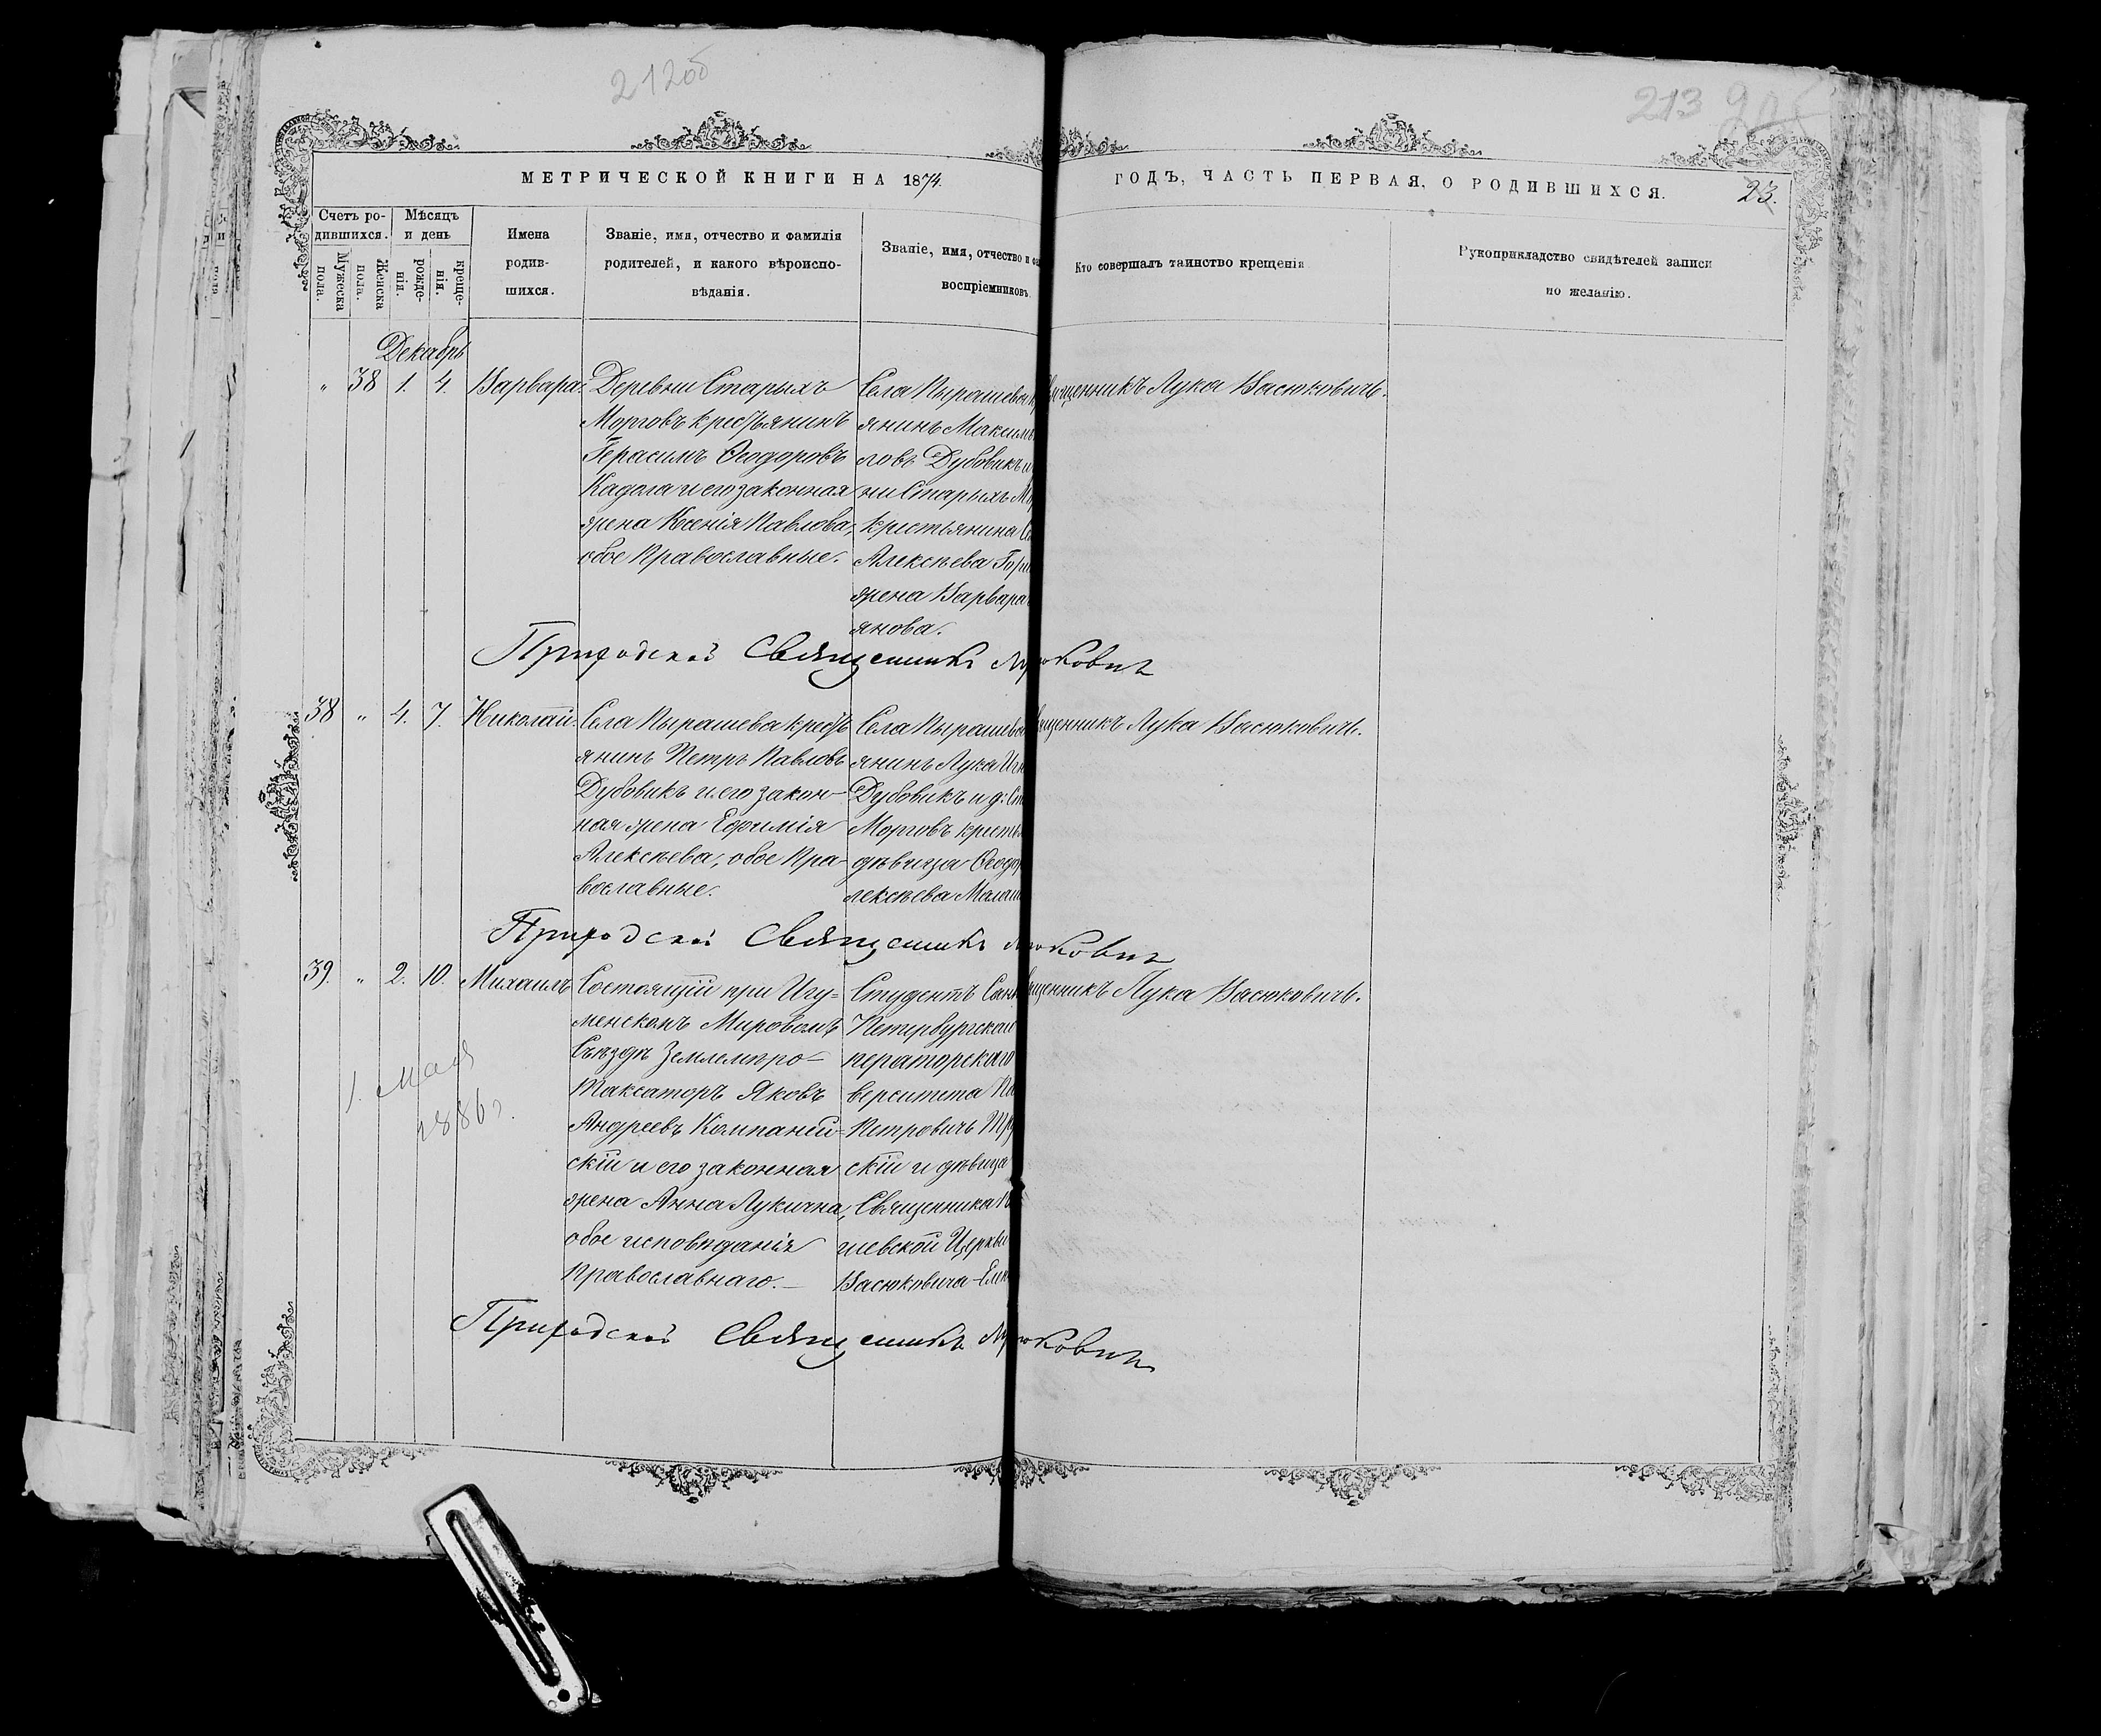 212об
213
МЕТРИЧЕСКОЙ КНИГИ НА 1874.
ГОДЪ, ЧАСТЬ ПЕРВАЯ, О РОДИВШИХСЯ.
23.
Счетъ ро-
дившихся.
Мужеска
пола.
Женска
пола.
Мѣсяцъ
и день
рожде-
нія.
креще-
нія.
Имена
родив-
шихся.
Званіе, имя, отчество и фамилія
родителей, и какого вѣроиспо-
вѣданія.
Званіе, имя, отчество и
воспріемниковъ.
Кто совершалъ таинство крещенія
Рукоприкладство свидѣтелей записи
по желанію.
Декабрь
" 38 1. 4. Варвара.
Деревни Старыхъ
Морговъ крестьянинъ
Герасимъ Ѳеодоровъ
Кадола и его законная
жена Ксенія Павлова,
обое Православные.
Села Пырашева
янинъ Максимъ
ловъ Дубовикъ и
ни Старыхъ М
крестьянина
Алексѣева
жена Варвара
янова.
щенникъ Лука Васюковичъ.
Приходской Священникъ Лу юковичъ
38 " 4. 7. Николай.
Села Пырашева крестъ
янинъ Петръ Павловъ
Дубовикъ и его закон-
ная жена Евфимія
Алексѣева, обое Пра-
вославные.
Села Пырашева
янинъ Лука Игн
Дубовикъ и д: Ст
Морговъ кресть
дѣвица Ѳеодо
лексѣева
щенникъ Лука Васюковичъ.
Приходской Священникъ юковичъ
39. " 2. 10. Михаилъ
Состоящій при Игу-
менскомъ Мировомъ
Съѣздѣ Землемѣро-
Таксаторъ Яковъ
Андреевъ Компаней-
скій и его законная
жена Анна Лукична,
обое исповѣданія
Православнаго.—
Студентъ Санк
Петербургскаго
ператорскаго
верситета
Петровичъ
скій и дѣвица
Священника
шевской Церкви
Васюковича Еле
щенникъ Лука Васюковичъ.
1. Мая
1886 г.
Приходской Священникъ Лу юковичъ